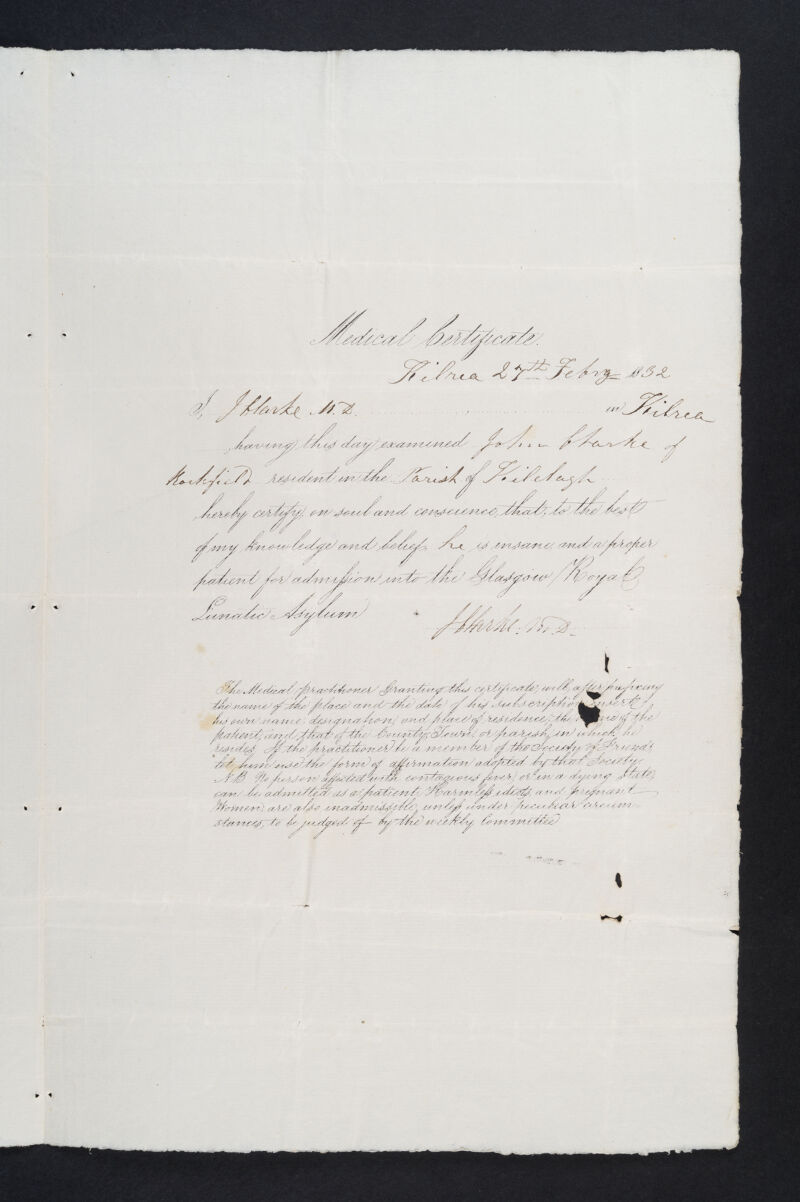 Medical Certificate.
Kilrea 27th Febry 1832
I, J Clarke M.D. in Kilrea
having this day examined John Clarke of
Rockfield resident in the Parish of Kilelagh
hereby certify on soul and conscience, that, to the best
of my knowledge and belief he is insane and a proper
patient for admission into the Glasgow Royal
Lunatic Asylum
J Clarke. M.D.
The Medical practitioner Granting this certificate, will, after prefixing
the name of the place and the date of his subscription insert
his own name, designation, and place of residence, the name of the
patient, and that of the County, Town, or parish, in which he
resides. If the practitioner be a member of the Society of Friends
let him use the form of affirmation adopted by that Society.
N.B. No person affected with contagious fever, or in a dying State,
can be admitted as a patient. Harmless idiots, and pregnant
Women, are also inadmissible, unless under peculiar circum-
stances, to be judged of by the weekly Committee